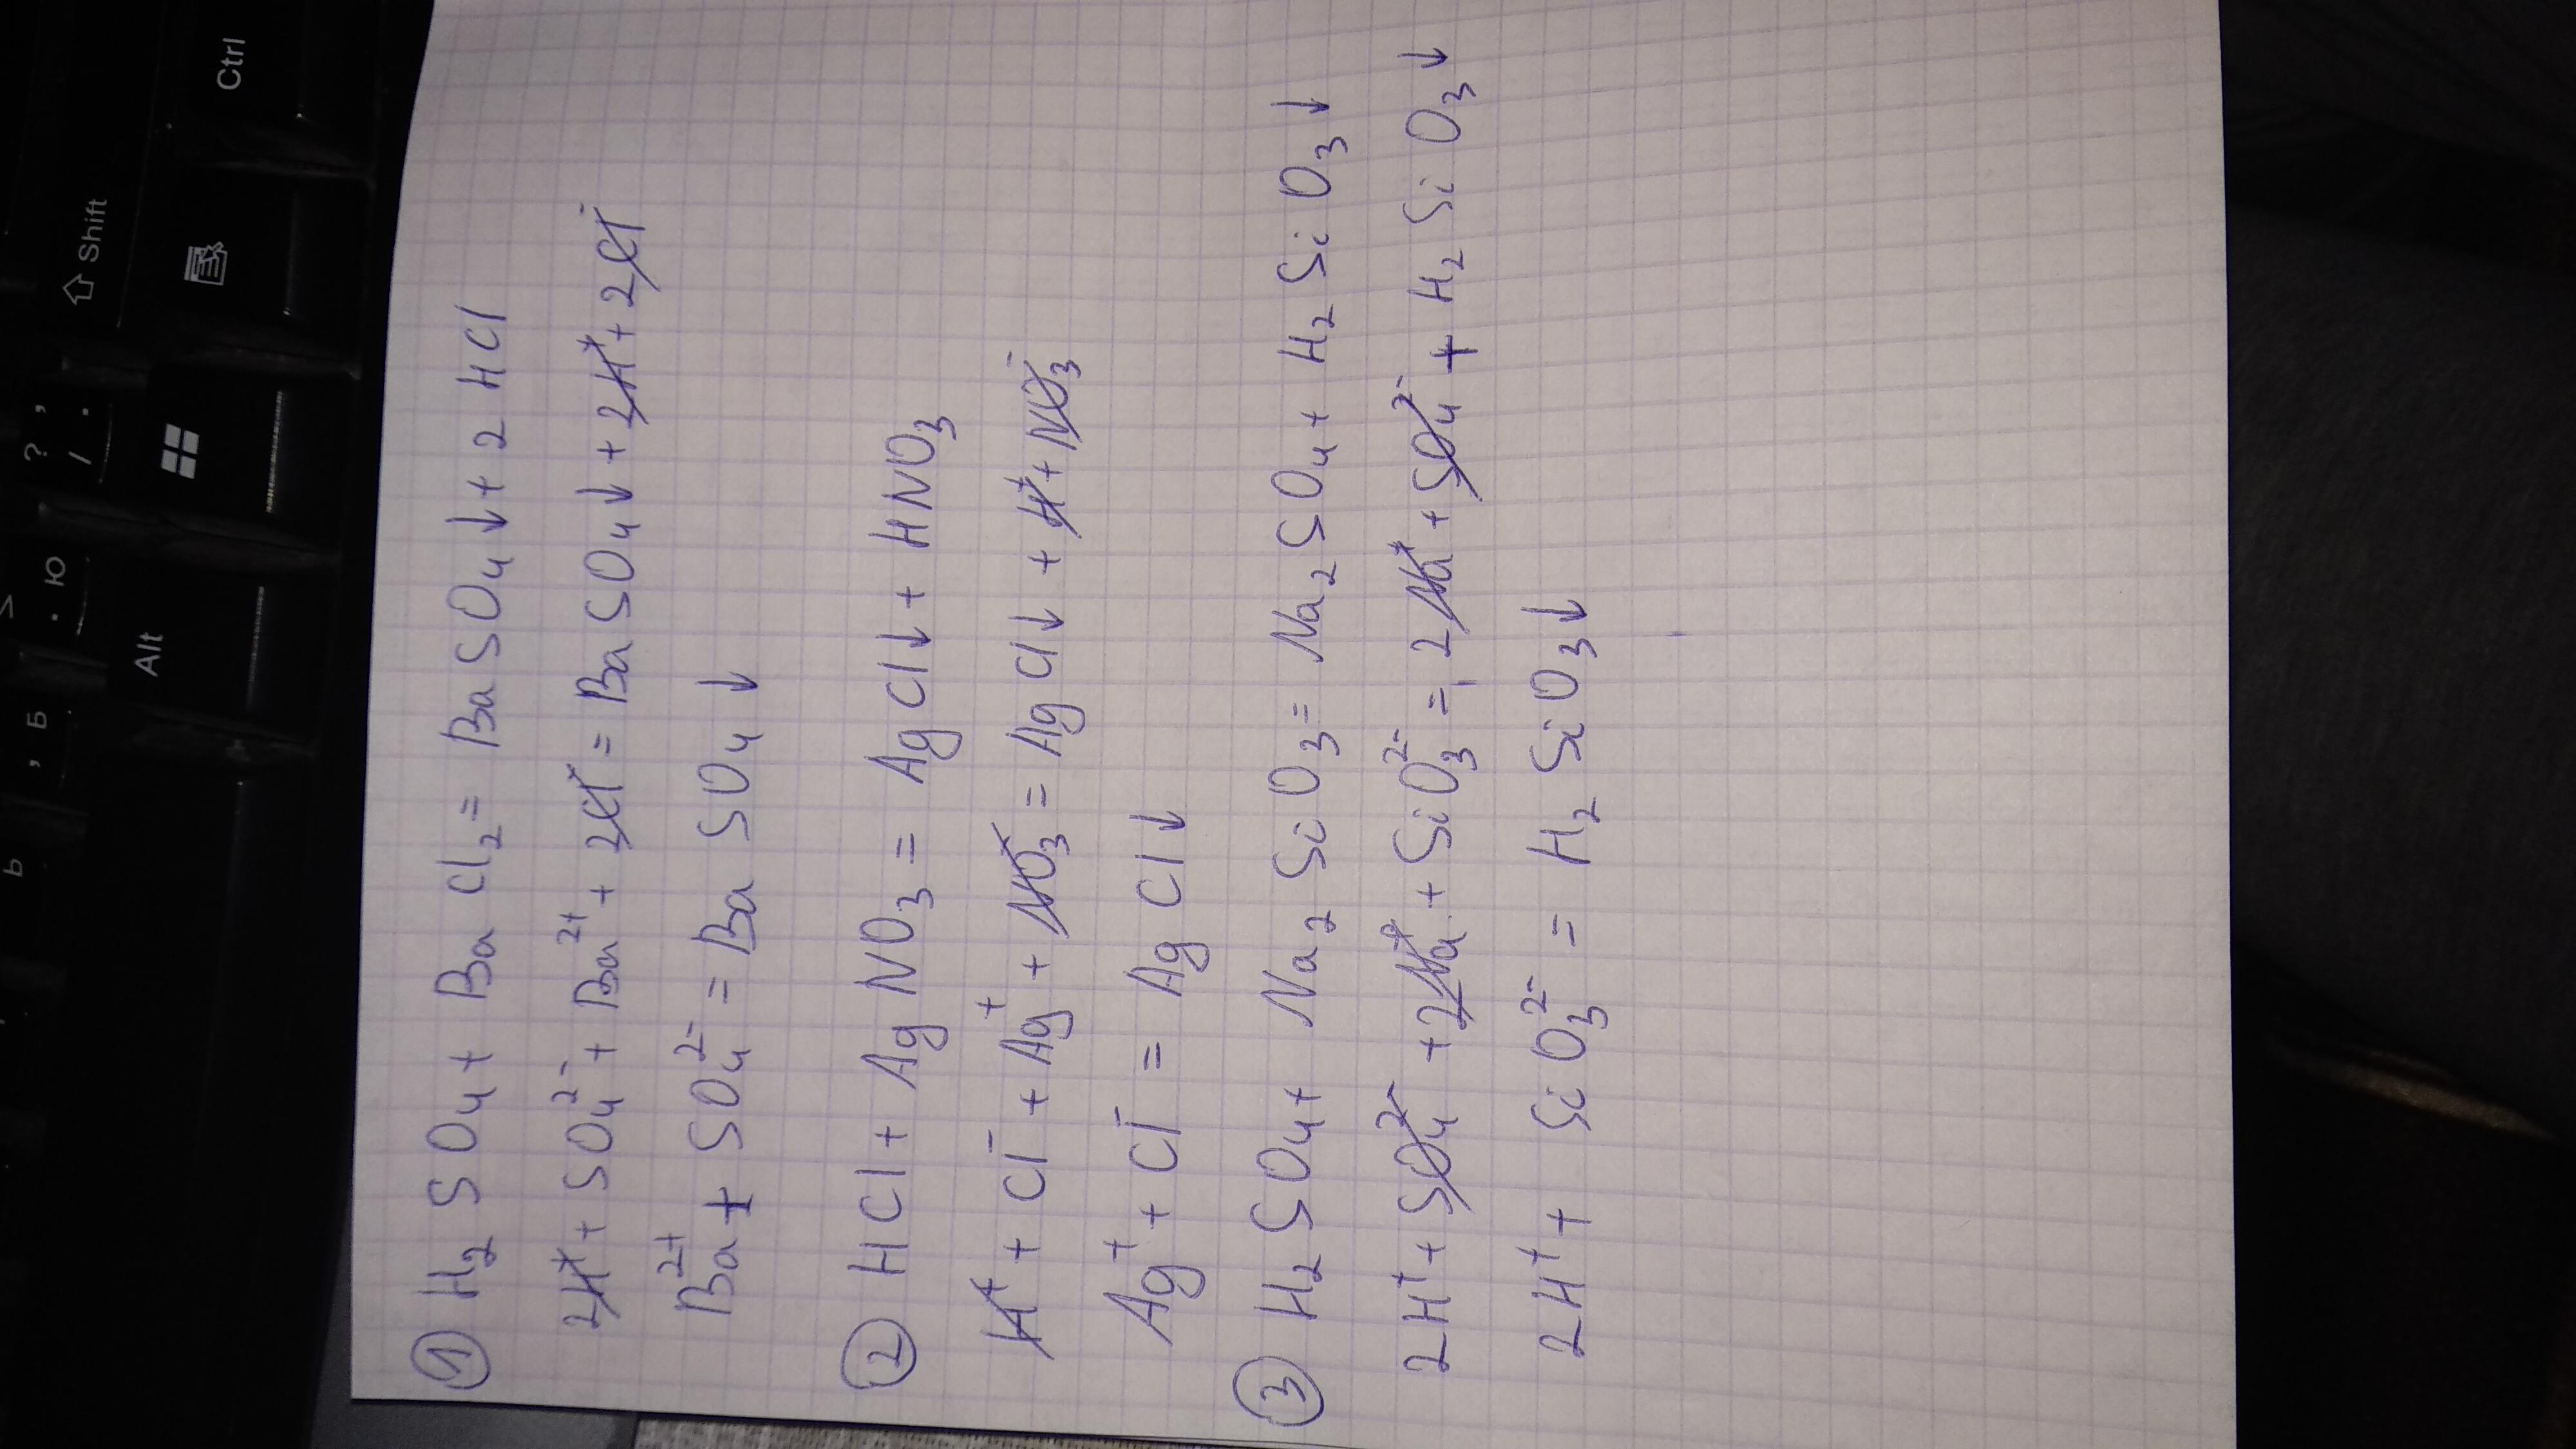 ① H₂SO₄ + BaCl₂ = BaSO₄↓ + 2HCl
2H⁺ + SO₄²⁻ + Ba²⁺ + 2Cl⁻ = BaSO₄↓ + 2H⁺ + 2Cl⁻
Ba²⁺ + SO₄²⁻ = BaSO₄↓
② HCl + AgNO₃ = AgCl↓ + HNO₃
H⁺ + Cl⁻ + Ag⁺ + NO₃⁻ = AgCl↓ + H⁺ + NO₃⁻
Ag⁺ + Cl⁻ = AgCl↓
③ H₂SO₄ + Na₂SiO₃ = Na₂SO₄ + H₂SiO₃↓
2H⁺ + SO₄²⁻ + 2Na⁺ + SiO₃²⁻ = 2Na⁺ + SO₄²⁻ + H₂SiO₃↓
2H⁺ + SiO₃²⁻ = H₂SiO₃↓
Ь
, Б
> . Ю
? / , .
⇧ Shift
Alt
Ctrl